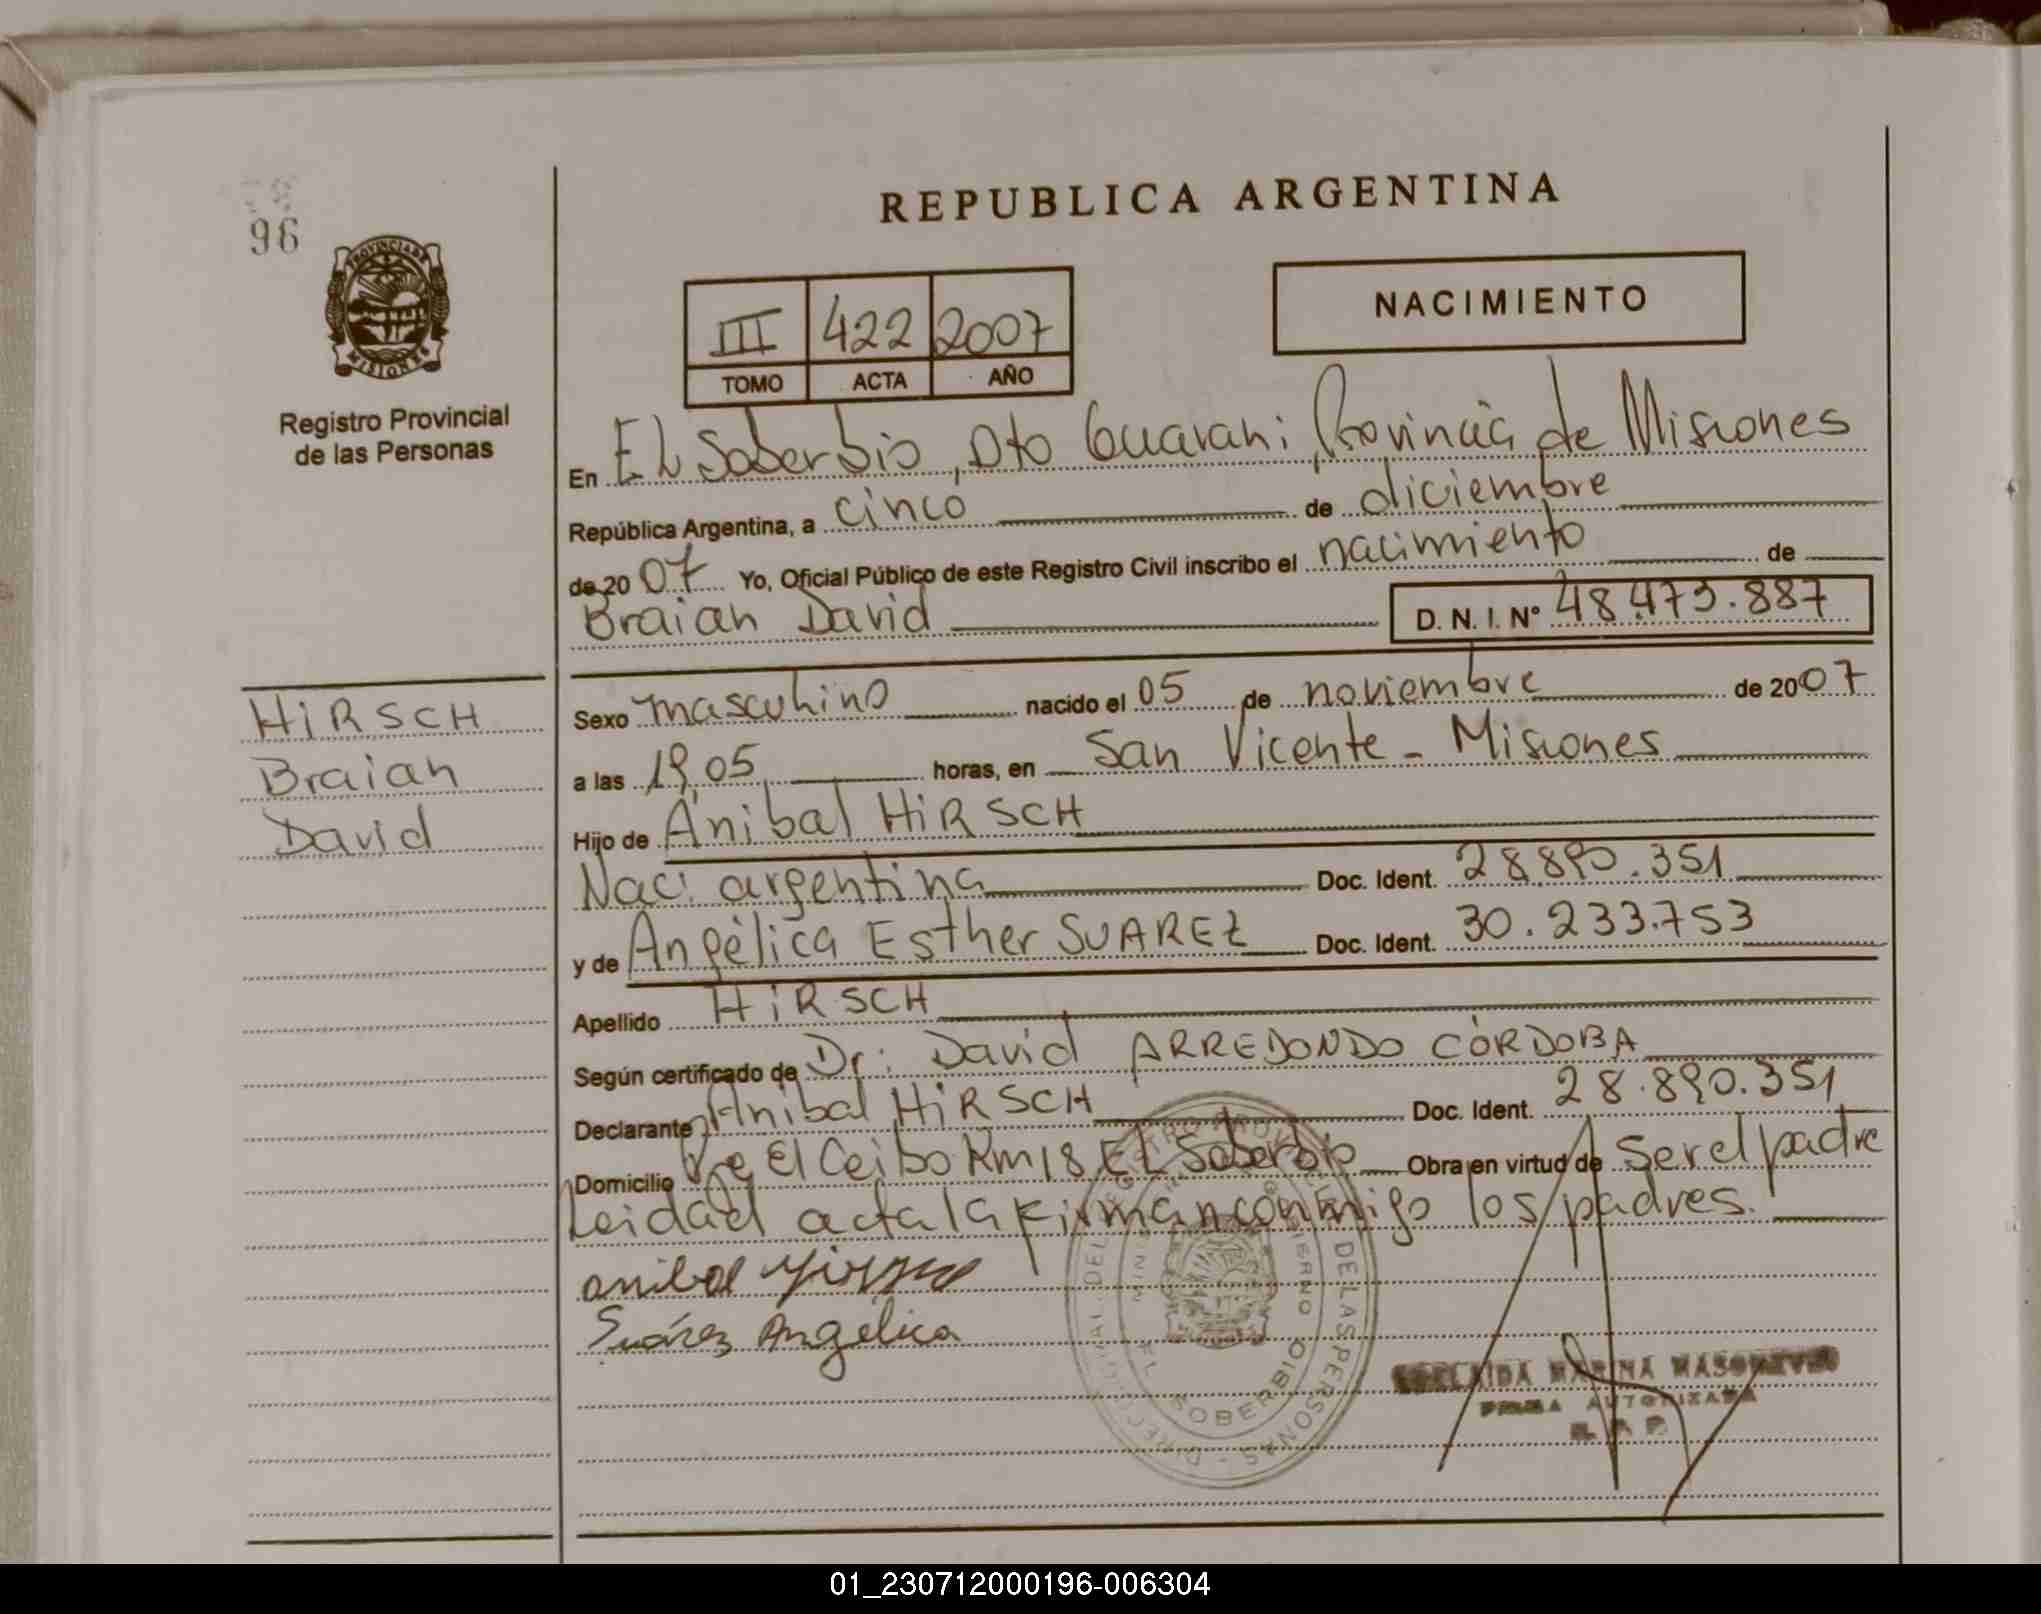 96
PROVINCIA DE
MISIONES
Registro Provincial
de las Personas
HiRSCH
Braian
David
REPUBLICA ARGENTINA
III 422 2007
TOMO ACTA AÑO
NACIMIENTO
En EL Soberbio, Dto Guarani, Provincia de Misiones
República Argentina, a cinco de diciembre
de 2007 Yo, Oficial Público de este Registro Civil inscribo el nacimiento de
Braian David D. N. I. Nº 48.473.887
Sexo masculino nacido el 05 de noviembre de 2007
a las 19,05 horas, en San Vicente - Misiones
Hijo de Anibal HiRSCH
Nac. argentina Doc. Ident. 28.890.351
y de Angélica Esther SUAREZ Doc. Ident. 30.233.753
Apellido HiRSCH
Según certificado de Dr: David ARREDONDO CÓRDOBA
Declarante Anibal HiRSCH Doc. Ident. 28.890.351
Domicilio El Ceibo Km 18 EL Soberbio Obra en virtud de ser el padre
Leida el acta la firman conmigo los padres.
anibal
Suárez Angélica
DIRECCION GRAL. DEL REGISTRO PROVINCIAL DE LAS PERSONAS
EL SOBERBIO
MARINA
FIRMA AUTORIZADA
01_230712000196-006304